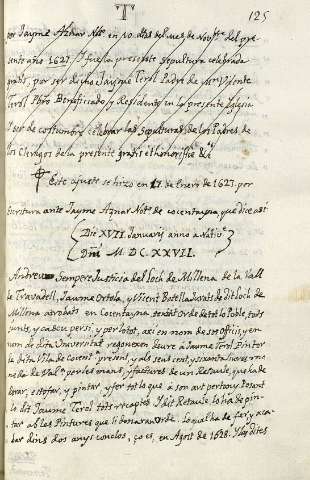 T
125
por Jayme Aznar Notº en 10. dias del mes de Novre. del pre-
sente año 1627. Y fue la presente sepultura celebrada
gratis, por ser dicho Jayme Terol Padre de Mn. Visente
Terol Pbro Beneficiado y Residente en la presente Iglesia
Y ser de costumbre celebrar las sepulturas de los Padres de
los Clerigos de la presente gratis
Este ajuste se hizo en 17 de Enero de 1627. por
escritura ante Jayme Aznar Notº. de cocentayna que dice asi
Die XVII Januarij anno a Nativ.
Dni. M. DC. XXVII.
Andreu Sempere Justicia del loch de Millena de la Vall
de Travadell, Jaume Ortola, y Vicent Botella Jurats de dit loch de
Millena atrobats en Cocentayna tenint orde de tot lo Poble, tots
junts, y cascu per si, y per lo tot, axi en nom de ses oficis, y en
nom de dita Universitat regonexen deure a Jaume Terol Pintor
de dita Vila de Cocent. present, y als seus cent, y sixanta lliures mo-
neda de Vala. per les mans, y factures de un Retaule, que ha de
daurar, estofar, y pintar, y fer tot lo que a son art pertany donant-
li dit Jaume Terol tots recaptes. Y dit Retaule lo ha de pin-
tar ab les Pintures que li demanaran. Lo qual ha de fer, y aca-
bar dins dos anys conclos, ço es, en Agost de 1628. Y los dites